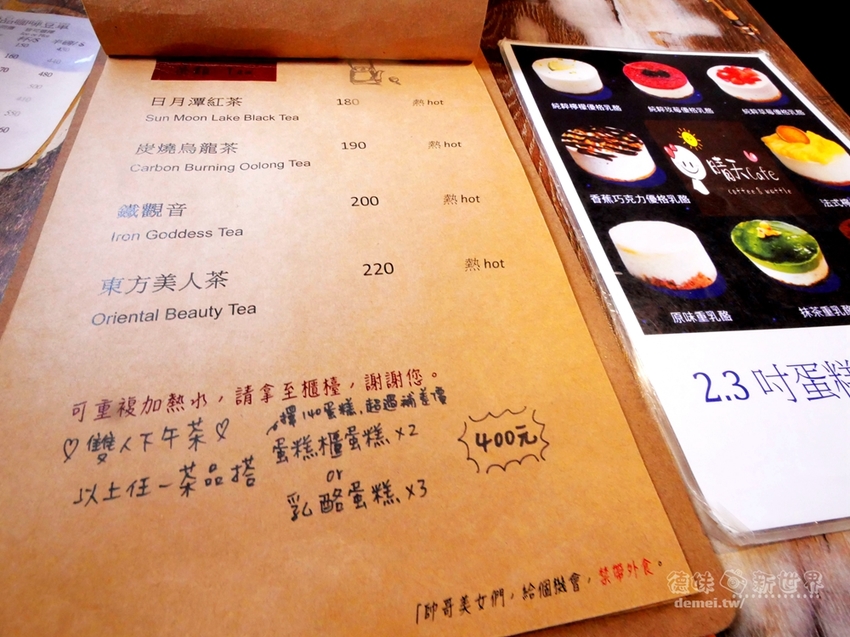 日月潭紅茶 180 熱 hot
Sun Moon Lake Black Tea
炭燒烏龍茶 190 熱 hot
Carbon Burning Oolong Tea
鐵觀音 200 熱 hot
Iron Goddess Tea
東方美人茶 220 熱 hot
Oriental Beauty Tea
可重複加熱水，請拿至櫃檯，謝謝您。
♡雙人下午茶♡
以上任一茶品搭
擇140蛋糕，超過補差價
蛋糕櫃蛋糕 x2
or
乳酪蛋糕 x3
400元
「帥哥美女們，給個機會，禁帶外食。
純粹檸檬優格乳酪
純粹玫瑰優格乳酪
香蕉巧克力優格乳酪
晴天Cafe
coffee & waffle
原味重乳酪
抹茶重乳酪
2.3 吋蛋糕
德妹 新世界
demei.tw/